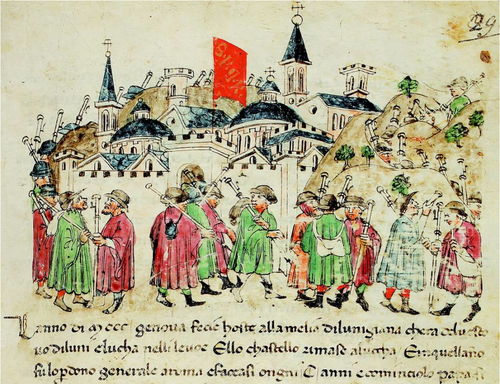 29
Lanno di mccc genova fecie hoste alla melia dilunigiana chera deluesco
uo diluni Elucha nelli leuoe Ello chastello rimase aluccha Einquellano
fu lo pdono generale aroma efaccasi ongni C anni ecominciolo papa